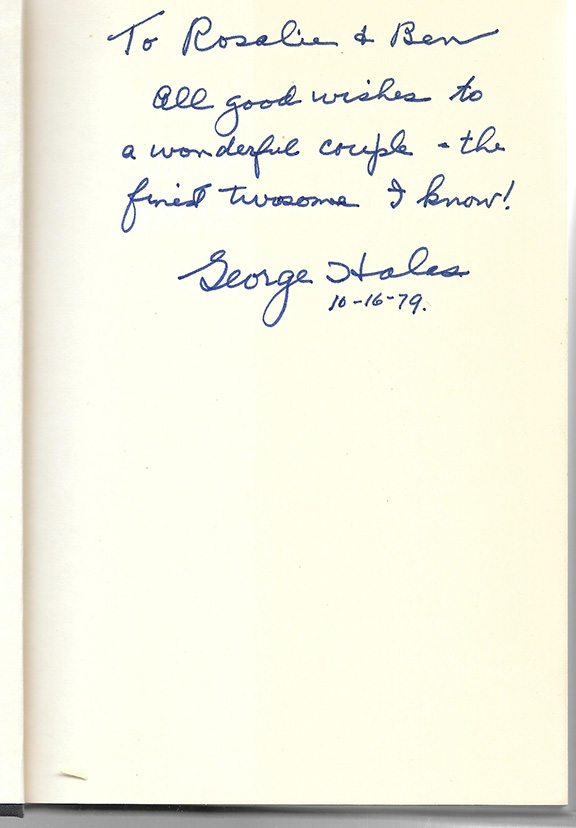 To Rosalie & Ben
All good wishes to
a wonderful couple - the
finest twosome I know!
George Halas
10-16-79.